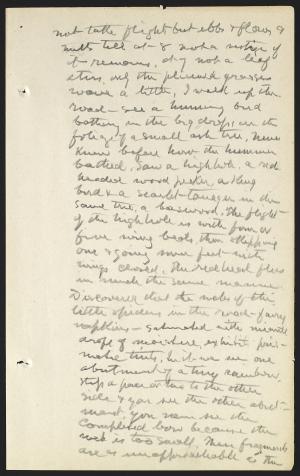 not take flight but ebbs & flows &
melts till at 8 not a vestige of
it remains. At 7 not a leaf
stirs, only the plumed grasses
wave a little, I walk up the
road - see a humming bird
bathing in the big drops on the
foliage of a small ash tree, never
knew before how the hummer
bathed. Saw a high hole, a red
headed wood pecker, a King
bird & a scarlet tanager in the
same tree, a basswood. The flight
of the high hole is with four or
five wing beats, then skipping
one & going some feet with
wings closed. The red head flies
in much the same manner.
Discovered that the webs of the
little spiders in the road - fairy
napkins - saturated with minute
drops of moisture, exhibit pris-
matic tints, he is we see one
abutment of a tiny rainbow.
Step a pace or two to the other
side & you see the other abut-
ment, you can see the
completed bow because the
web is too small. These fragments
are as unapproachable as the